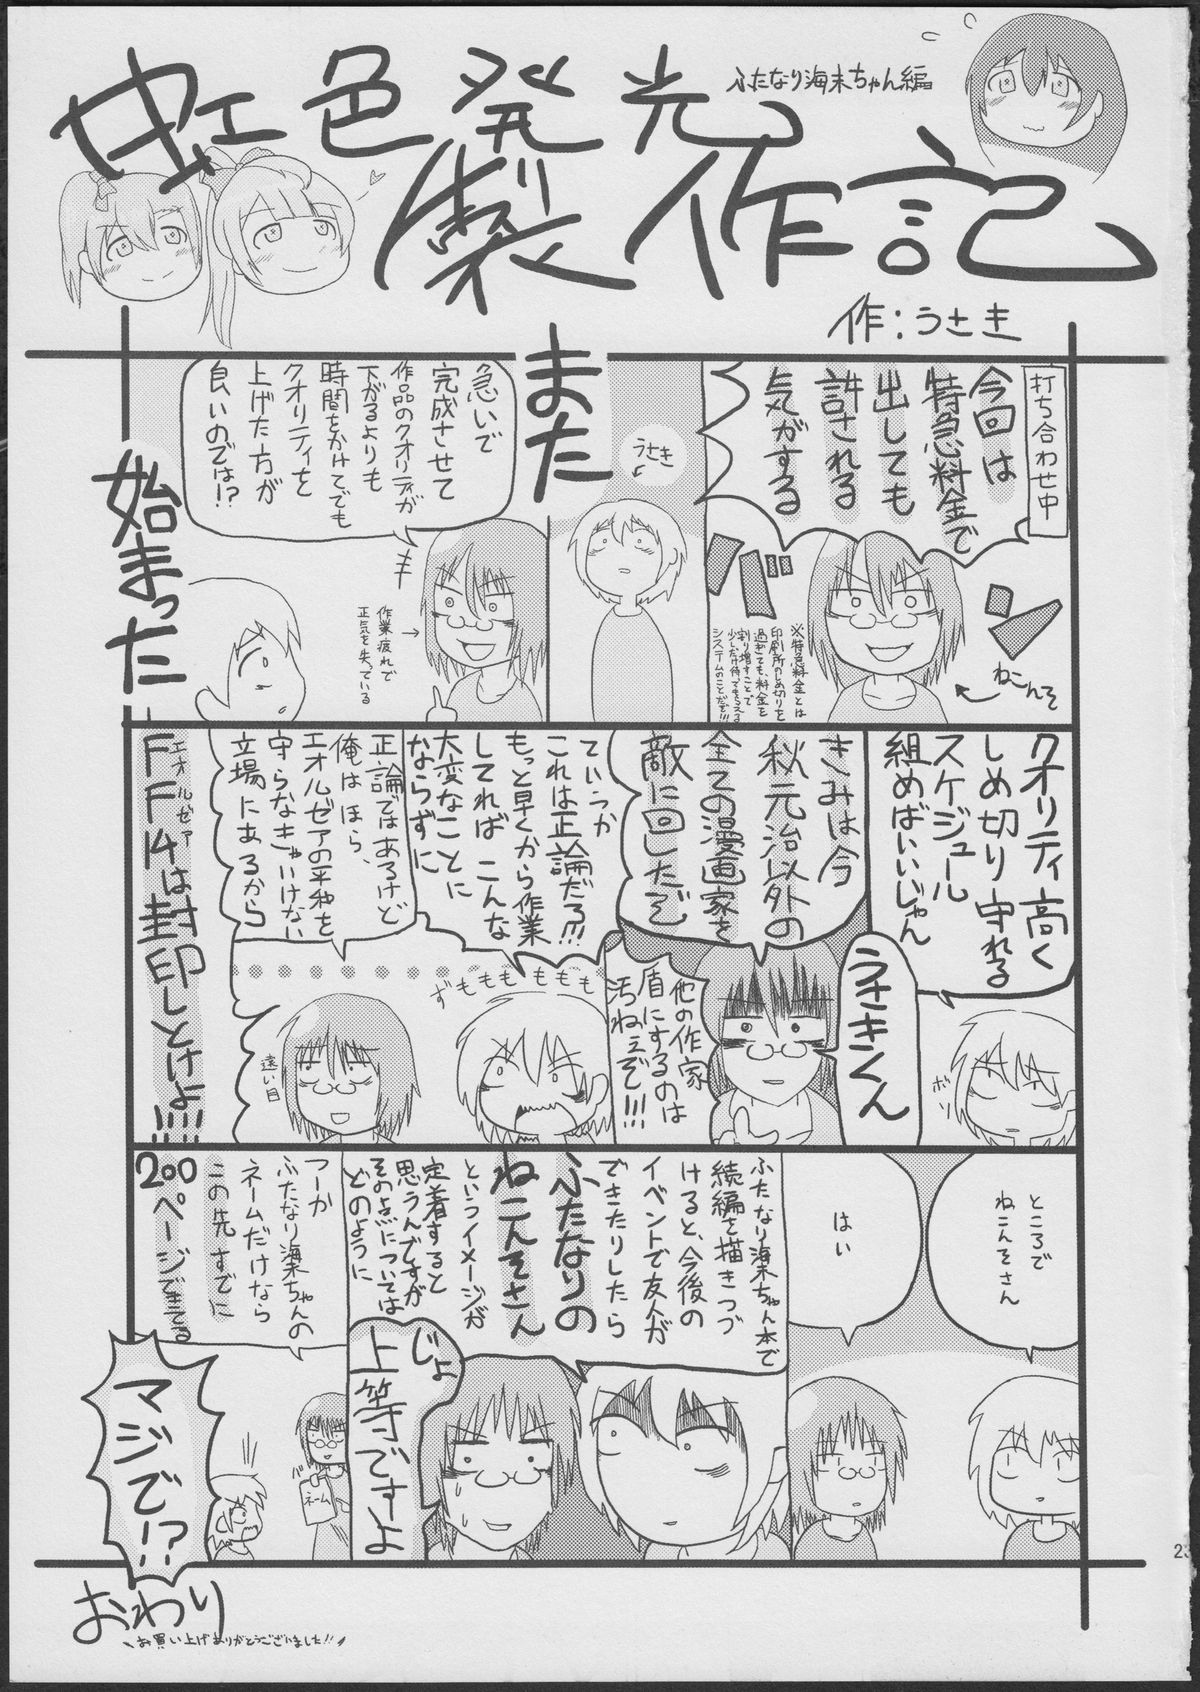 ふたなり海未ちゃん編
虹色発光
製作記
作:うさき
打ち合わせ中
今回は
特急料金で
出しても
許される
気がする
バ
ン
ねこんそ
※特急料金とは
印刷所のしめ切りを
過ぎても、料金を
割り増すことで
少しだけ待ってもらえる
システムのことだぞ!!!
うさき
急いで
完成させて
作品のクオリティが
下がるよりも
時間をかけてでも
クオリティを
上げた方が
良いのでは!?
作業疲れで
正気を失っている
また
始まった
クオリティ高く
しめ切り守れる
スケジュール
組めばいいじゃん
ボソ
うさきくん
きみは今
秋元治以外の
全ての漫画家を
敵に回したぞ
他の作家
盾にするのは
汚ねぇぞ!!!
ていうか
これは正論だろ!!!
もっと早くから作業
してれば こんな
大変なことに
ならずに
ずももももももも
正論ではあるけど
俺はほら、
エオルゼアの平和を
守らなきゃいけない
立場にあるから
遠い目
エオルゼア
FF14は封印しとけよ!!!!
ところで
ねこんそさん
はい
ふたなり海未ちゃん本で
続編を描きつづ
けると、今後の
イベントで友人が
できたりしたら
ふたなりの
ねこんそさん
というイメージが
定着すると
思うんですが
その点については
どのように
じょ
上等ですよ
つーか
ふたなり海未ちゃんの
ネームだけなら
この先すでに
200ページできてる
バッ
ネーム
マジで!?
おわり
お買い上げありがとうございました!!